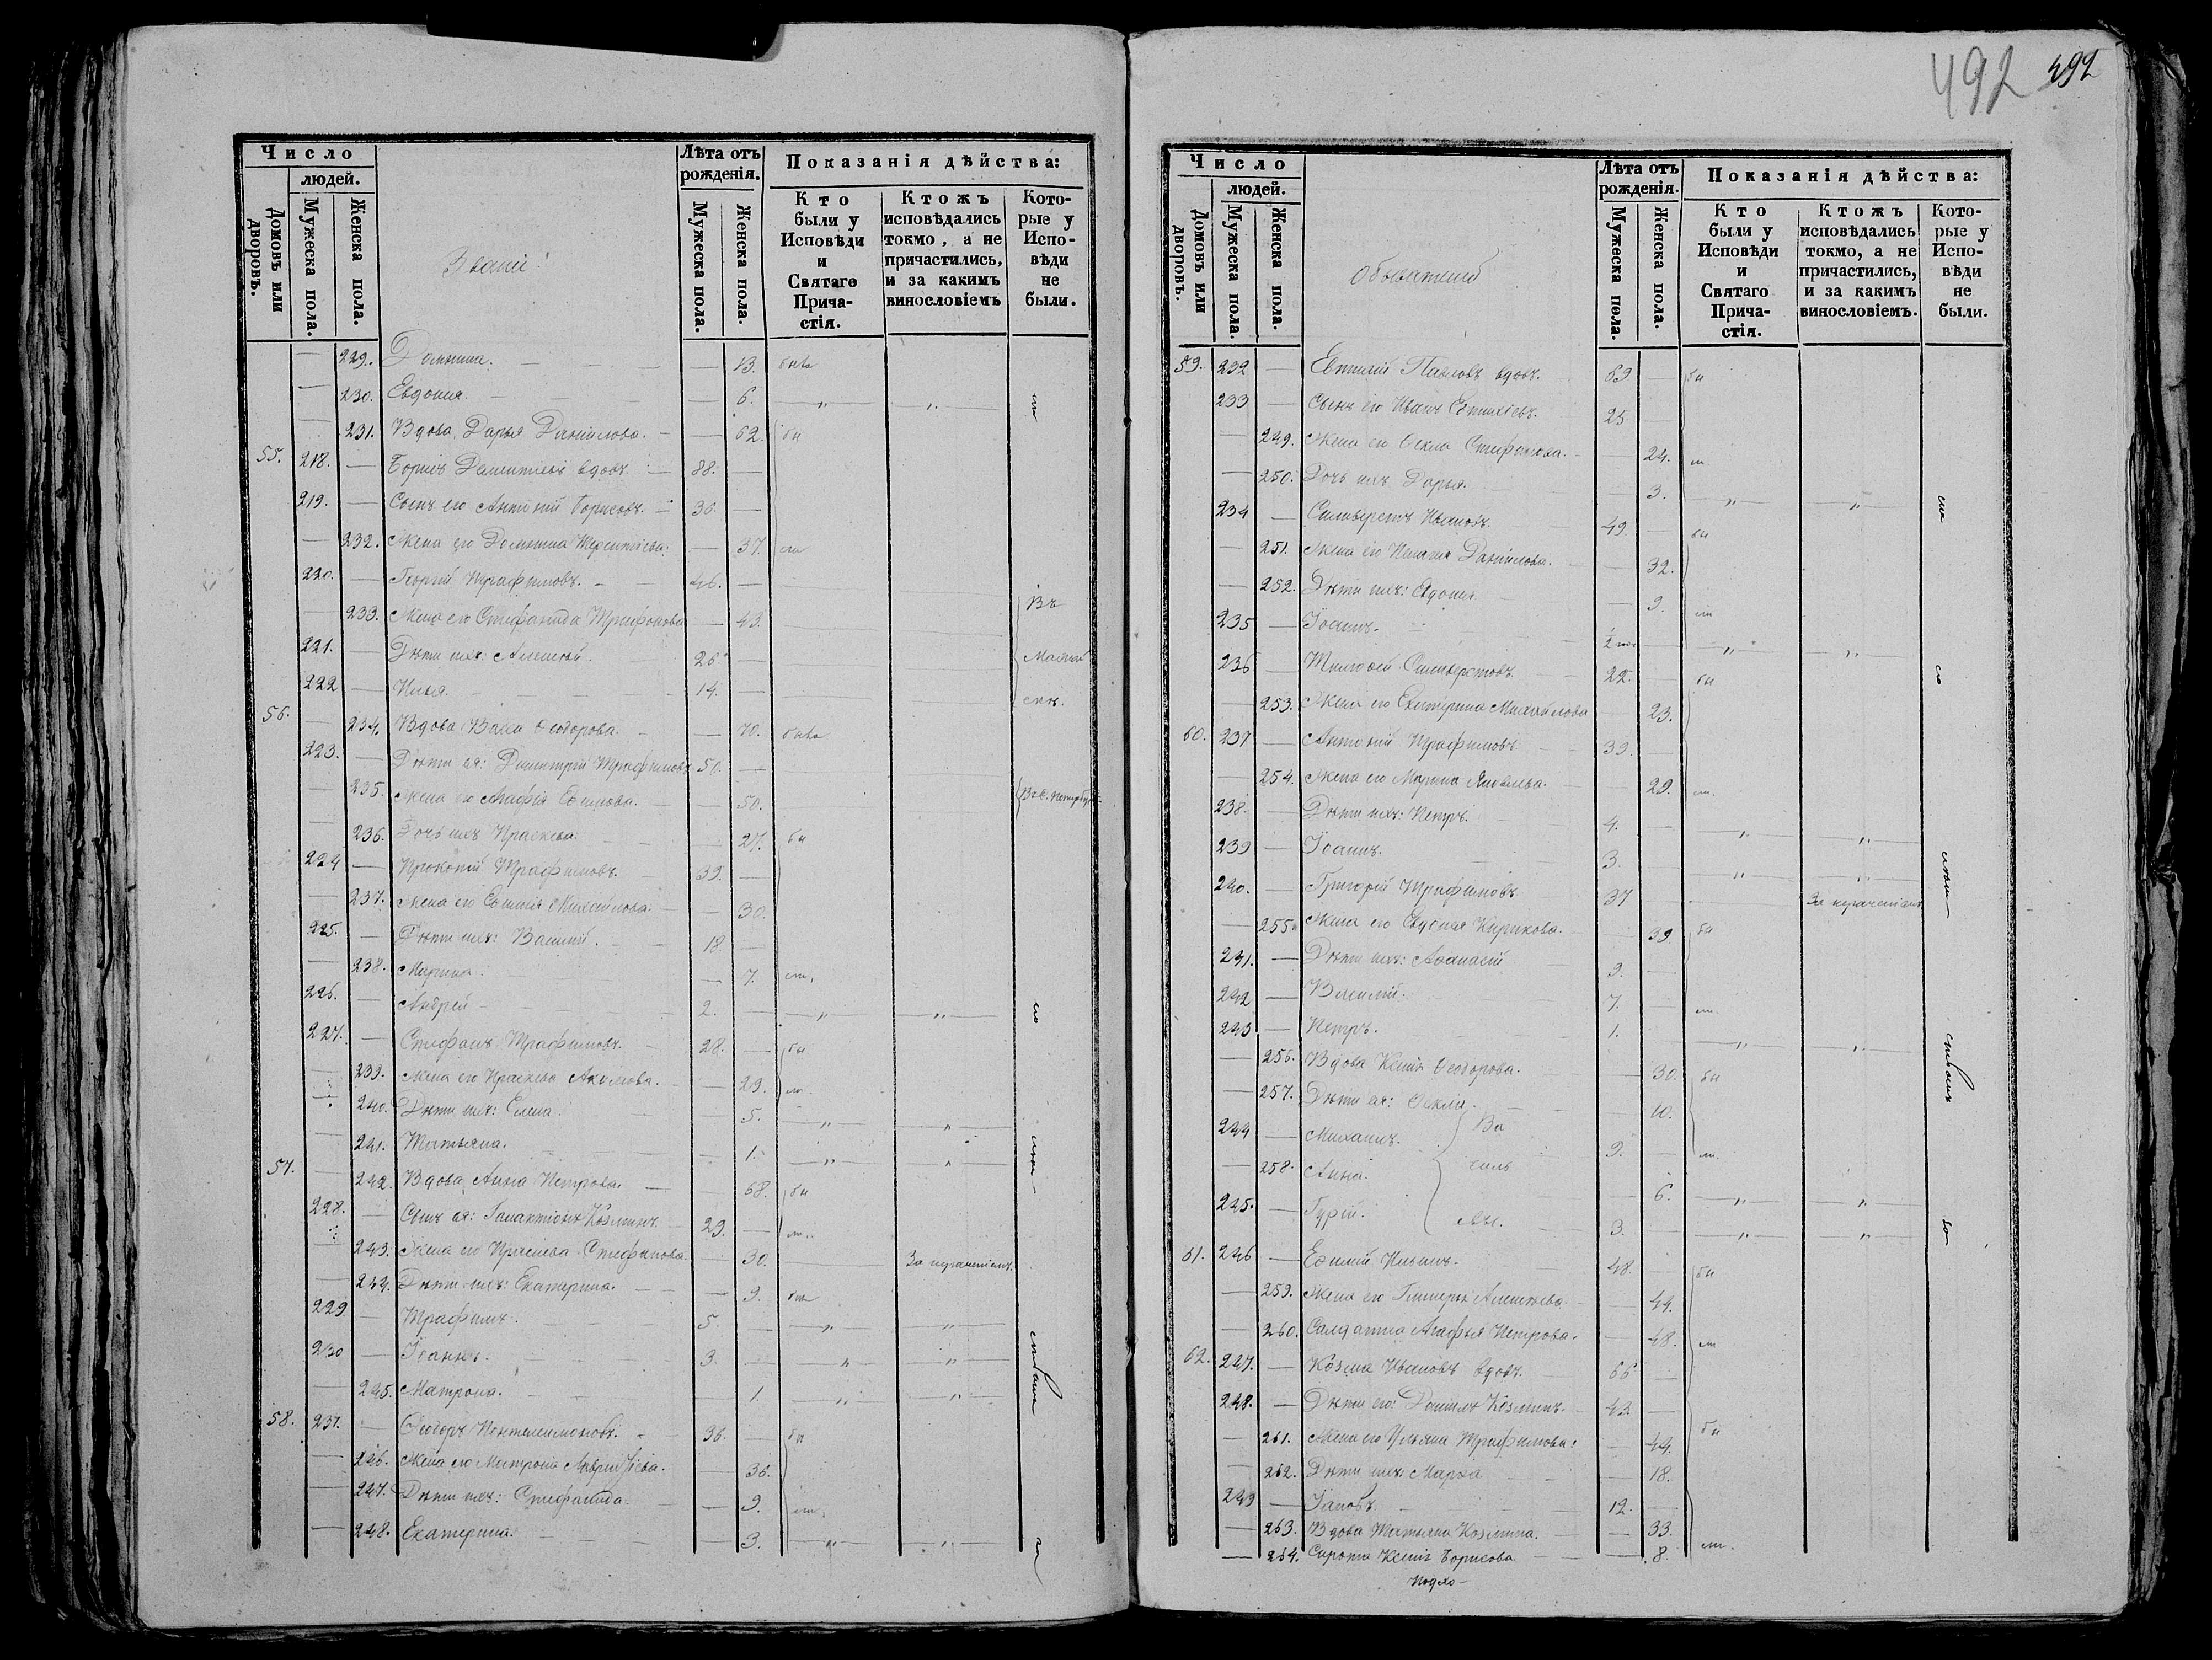 Число
людей.
Домовъ или дворовъ.
Мужеска пола.
Женска пола.
Званіе
Лѣта отъ рожденія.
Мужеска пола.
Женска пола.
Показанія дѣйства:
Кто были у Исповѣди и Святаго Прича-стія.
Ктожъ исповѣдались токмо, а не причастились, и за какимъ винословіемъ
Кото-рые у Испо-вѣди не были.
— 229. Домника. — 13. быва
— 230. Евдокия. — 6. — „ — „ —
231. Вдова Дарья Данилова. — 62. бы
55. 218. — Борисъ Дементьевъ вдовъ. 88. —
219. — Сынъ его Антоній Борисовъ. 36. —
— 232. Жена его Домника Терентіева. — 37. ли
220. — Георгій Трафимовъ. 46. —
— 233. Жена его Стефанида Трифонова — 43. Въ
221. — Дѣти ихъ: Алексей. 26. —
222 — Илья. 14. —
56. — 234. Вдова Васса Ѳеодорова. — 70. быва
223. — Дѣти ея: Димитрій Трафимовъ 50. —
— 235. Жена его Агафія Ефимова. — 50. Въ С. Петербур
— 236. Дочь ихъ Праскева. — 27. бы
224 — Прокопій Трафимовъ. 39. —
— 237. Жена его Евфимія Михайлова. — 30.
225. — Дѣти ихъ: Василій. 18. —
— 238. Марина. — 7. ли.
226. — Андрей 2. — „ — „ —
227. — Стефанъ Трафимовъ. 28. — бы
239. Жена его Праскева Акимова. — 23. ли
240. Дѣти ихъ: Елена. — 5. — „ — „ —
— 241. Татьяна. — 1. — „ — „ —
57. — 242. Вдова Анна Петрова. — 68. бы
228. — Сынъ ея: Галактіонъ Козминъ 29. — ли.
243. Жена его Праскева Стефанова. — 30. За нераченіемъ.
— 244. Дѣти ихъ: Екатерина. — 9. были
229 — Трафимъ. 5. — „ — „ —
230 — Іоаннъ. 3. — „ — „ —
— 245. Матрона. — 1 — „ — „ —
58. 231. — Ѳеодоръ Пентелимоновъ. 36. — бы
— 246. Жена его Матрона Лаврентіева. — 36.
— 247. Дѣти ихъ: Стефанида. — 9. ли.
— 248. Екатерина. — 3. — „ — „ —
492 492
Число
людей.
Домовъ или дворовъ.
Мужеска пола.
Женска пола.
обывателей
Лѣта отъ рожденія.
Мужеска пола.
Женска пола.
Показанія дѣйства:
Кто были у Исповѣди и Святаго Прича-стія.
Ктожъ исповѣдались токмо, а не причастились, и за какимъ винословіемъ.
Кото-рые у Испо-вѣди не были.
59. 232 — Евтихій Павловъ вдовъ. 69 — бы
233 — Сынъ его Иванъ Евтихіевъ. 25
— 249. Жена его Ѳекла Стефанова. — 24. ли
— 250. Дочь ихъ Дарья. — 3. — „ — „ —
234 — Сильверстъ Ивановъ. 49. — бы
— 251. Жена его Данилова. — 32.
— 252. Дѣти ихъ: Евдокия — 9. ли
235 — Іоаннъ. — „ — „ —
236 — Тимофей Сильверстовъ. 22. — бы
— 253. Жена его Екатерина Михайлова — 23.
60. 237 — Антоній Трафимовъ 39. —
— 254. Жена его Марина Яковлева. — 29. ли.
238. — Дѣти ихъ: Петръ. 4. — „ — „ —
239 — Іоаннъ. 3. — „ — „ —
240. — Григорій Трафимовъ 37 — За нераченіемъ
— 255. Жена его Евдокия Кирикова. — 39. бы
241. — Дѣти ихъ: Афанасій 9. —
242 — Василій. 7. — ли
243 — Петръ. 1. — „ — „ —
— 256. Вдова Ксенія Ѳеодорова. — 30. бы
— 257. Дѣти ея: Ѳекла. — 10.
244 — Михаилъ. Ва 9. — ли.
— 258. Анна. силь — 6. — „ — „ —
245. — Гурій. евы. 3. — „ — „ —
61. 246 — Ефимій Ильинъ. 48. — бы
— 259. Жена его Гликерья Алексеева — 44.
— 260. Салдатка Агафья Петрова. — 48. ли
62. 247. — Козма Ивановъ вдовъ. 66 —
248. — Дѣти его: Даниилъ Козминъ. 43 —
— 261. Жена его Ульяна Трафимова. — 44. бы
— 262. Дѣти ихъ: Марфа — 18.
249 — Іаковъ. 12. —
— 263. Вдова Татьяна Козмина. — 33.
— 264. Сирота Ксенія Борисова — 8. ли.